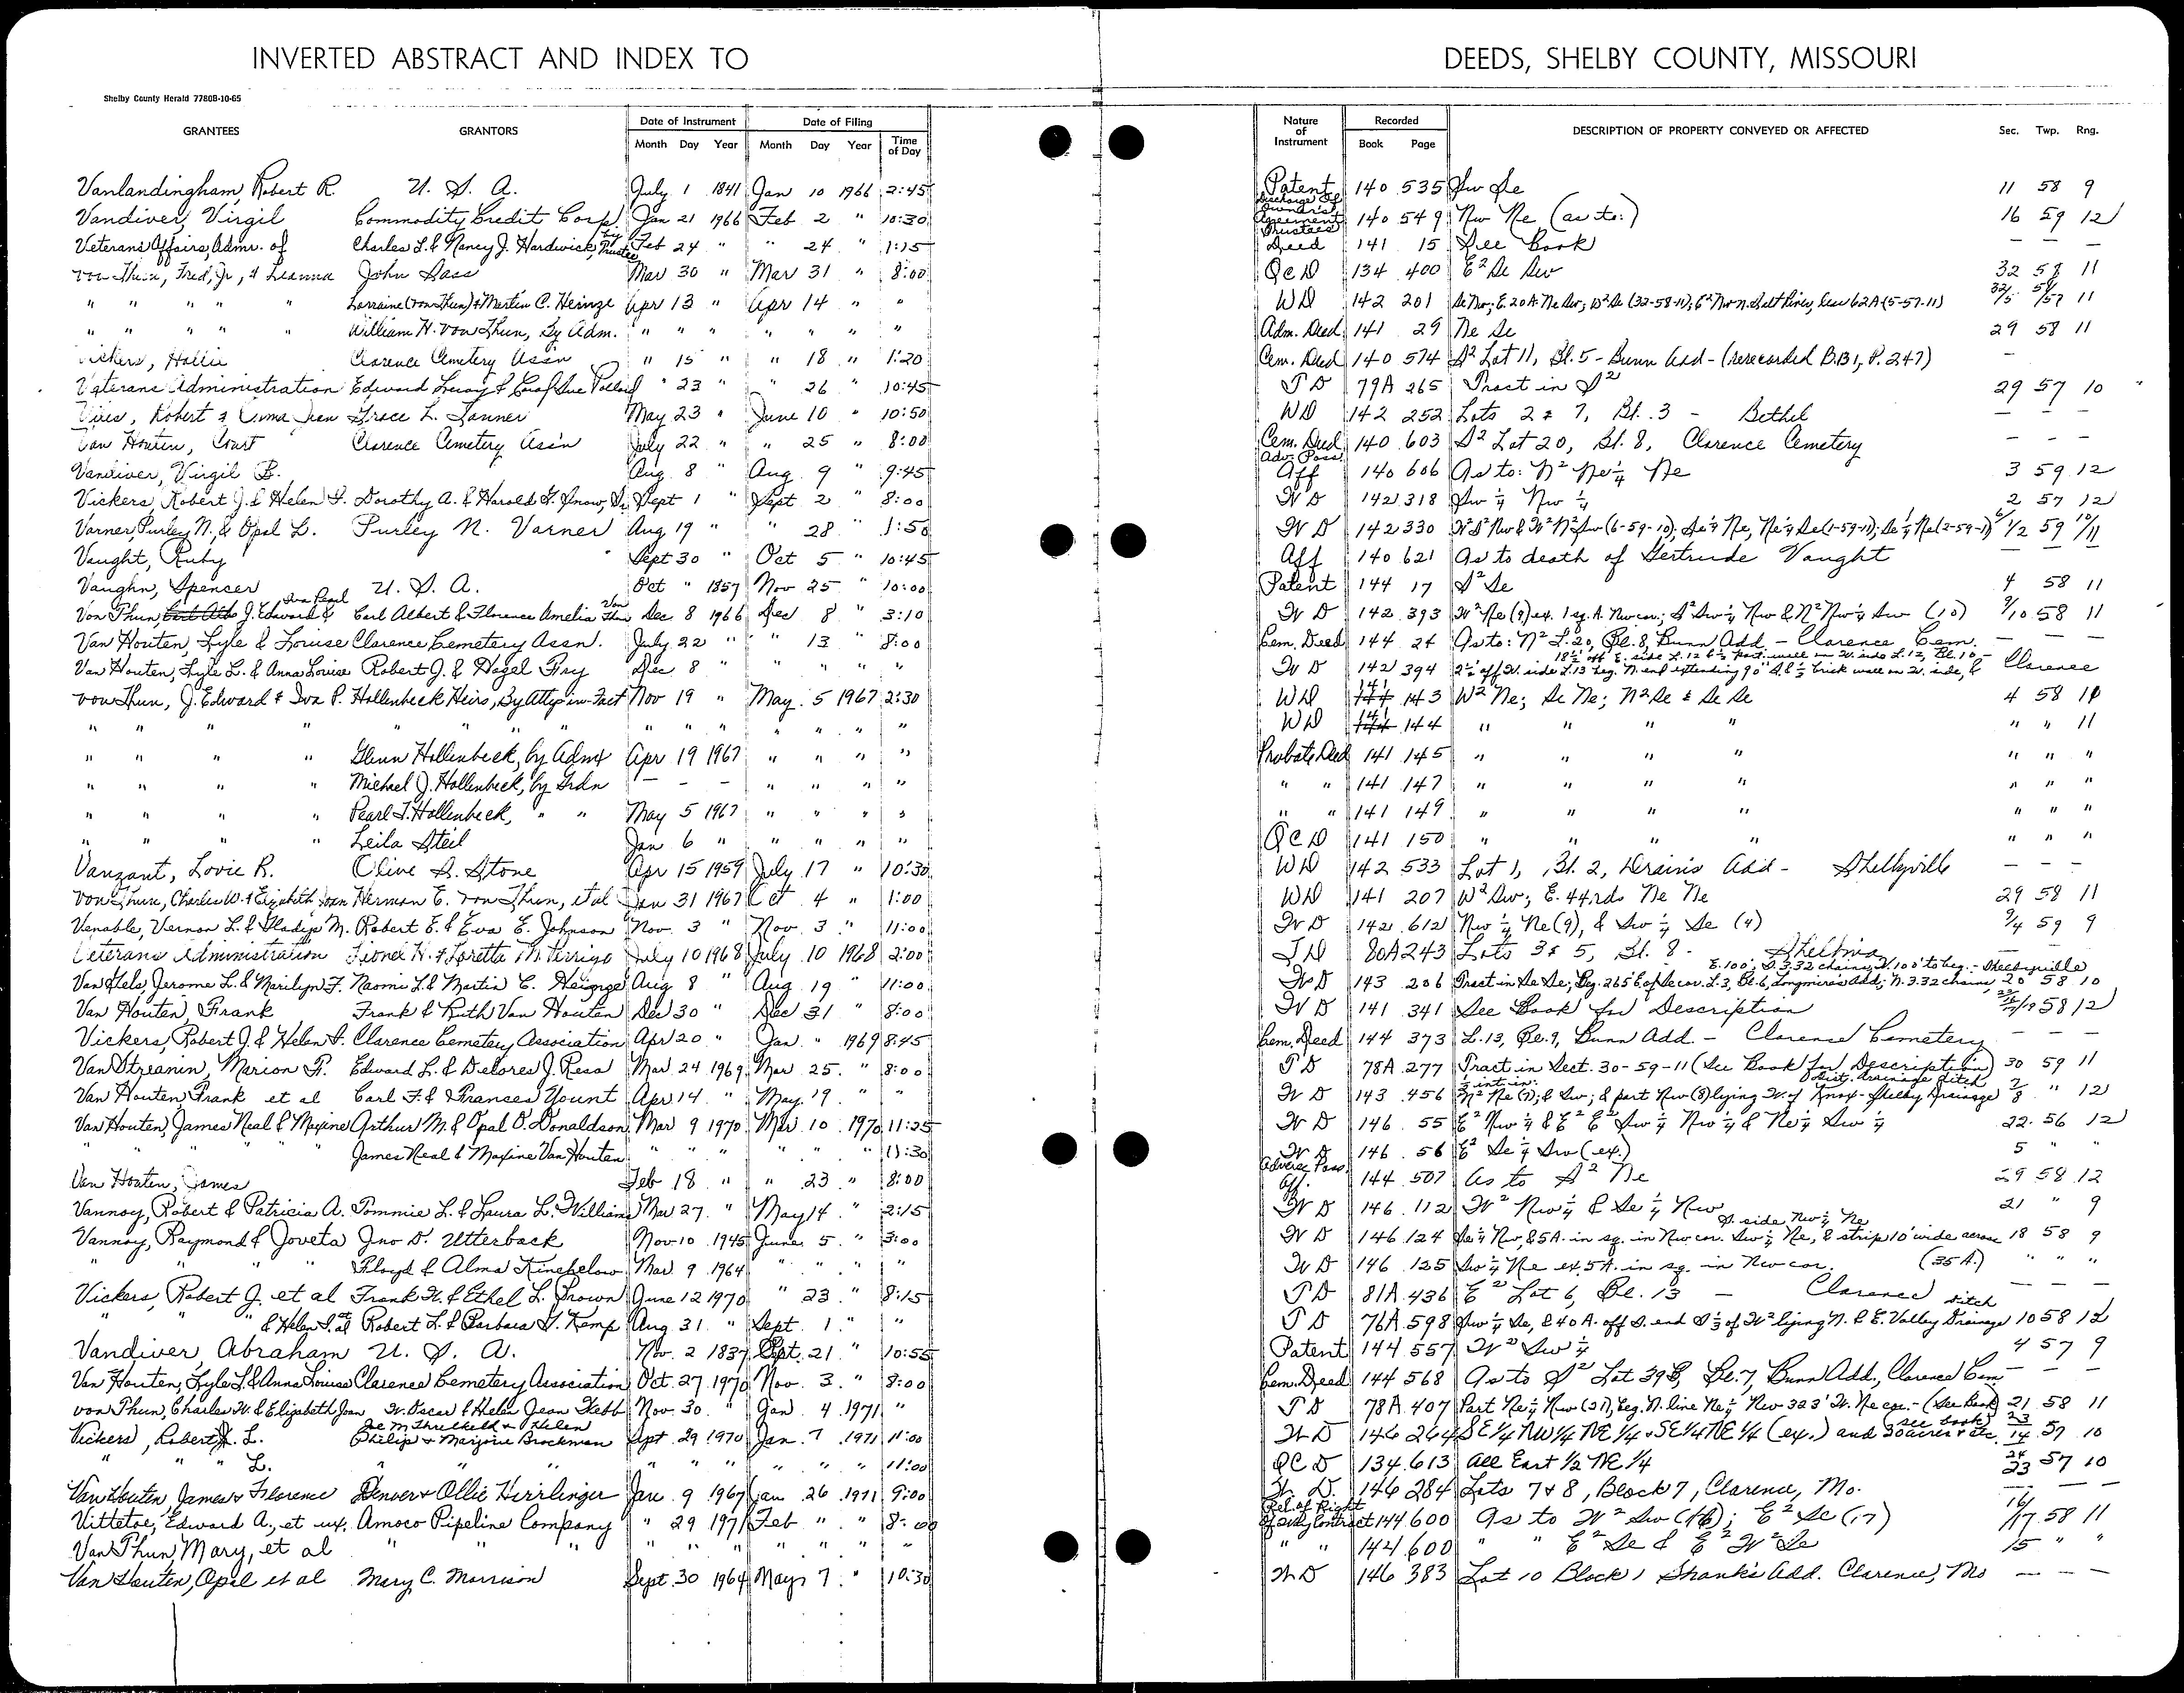 INVERTED ABSTRACT AND INDEX TO DEEDS, SHELBY COUNTY, MISSOURI
Shelby County Herald 7780B-10-65
GRANTEES GRANTORS Date of Instrument Date of Filing Nature of Instrument Recorded DESCRIPTION OF PROPERTY CONVEYED OR AFFECTED Sec. Twp. Rng.
Month Day Year Month Day Year Time of Day Book Page
Vanlandingham, Robert R. U. S. A. July 1 1841 Jan 10 1966 2:45 Patent 140 535 Sw Se 11 58 9
Vandiver, Virgil Commodity Credit Corp. Jan 21 1966 Feb 2 " 10:30 Discharge Of Owner's Agreement 140 549 Nw Ne (as to:) 16 59 12
Veterans Affairs, Admr. of Charles L. & Nancy J. Hardwick, by Trustee Feb 24 " " 24 " 1:15 Trustees Deed 141 15 See Book — — —
von Thun, Fred, Jr., & Leanna John Sass Mar 30 " Mar 31 " 8:00 QCD 134 400 E² Se Sw 32 58 11
" " " " Lorraine (von Thun) & Martin C. Heinze Apr 13 " Apr 14 " " WD 142 201 Se Nw; E 20A Ne Sw; W² Se (32-58-11); E² Nw n. Salt River, 62A (5-57-11) 32/5 58/57 11
" " " " William H. von Thun, By Adm. " " " " " " " Adm. Deed 141 29 Ne Se 29 58 11
Vickers, Hollie Clarence Cemetery Ass'n " 15 " " 18 " 1:20 Cem. Deed 140 574 S² Lot 11, Bl. 5 - Bunn Add - (rerecorded B.B1, P. 247) —
Veterans Administration Edward Leroy & Carol Sue Pollard " 23 " " 26 " 10:45 TD 79A 265 Tract in S² 29 57 10
Vires, Robert & Oma Jean Grace L. Tanner May 23 " June 10 " 10:50 WD 142 252 Lots 2 & 7, Bl. 3 - Bethel — —
Van Houten, Court Clarence Cemetery Ass'n July 22 " " 25 " 8:00 Cem. Deed 140 603 S² Lot 20, Bl. 8, Clarence Cemetery — — —
Vandiver, Virgil B. Aug 8 " Aug. 9 " 9:45 Adv. Poss. Aff 140 606 As to: N² Ne¼ Ne 3 59 12
Vickers, Robert J. & Helen I. Dorothy A. & Harold G. Snow, Sr. Sept 1 " Sept 2 " 8:00 WD 142 318 Sw ¼ Nw ¼ 2 57 12
Varner, Purley N. & Opal L. Purley N. Varner Aug 19 " " 28 " 1:50 WD 142 330 W² S² Nw & W² N² Sw (6-59-10); Se¼ Ne, Ne¼ Se (1-59-11); Se¼ Ne (2-59-11) 6/1/2 59 10/11
Vaught, Ruby Sept 30 " Oct 5 " 10:45 Aff 140 621 As to death of Gertrude Vaught — — —
Vaughn, Spencer U. S. A. Oct " 1857 Nov 25 " 10:00 Patent 144 17 S² Se 4 58 11
Von Thun, J. Edward & Iva Pearl Carl Albert & Florence Amelia Von Thun Dec 8 1966 Dec 8 " 3:10 WD 142 393 W² Ne (9) ex. 1 sq. A. Nw cor.; S² Sw¼ Nw & N² Nw¼ Sw (10) 9/10 58 11
Van Houten, Lyle & Louise Clarence Cemetery Assn. July 22 " " 13 " 8:00 Cem. Deed 144 24 As to: N² L. 20, Bl. 8, Bunn Add - Clarence Cem. — — —
Van Houten, Lyle L. & Anna Louise Robert J. & Hazel Fry Dec 8 " " " " " WD 142 394 18½' off E. side L. 12 & ½ part. wall on W. side L. 12, Bl. 10 - 2½' off W. side L. 13 beg. N. end extending 90' S. & ½ brick wall on W. side, & Clarence
von Thun, J. Edward & Iva P. Hollenbeck Heirs, By Atty-in-Fact Nov 19 " May 5 1967 2:30 WD 141 143 W² Ne; Se Ne; N² Se & Se Se 4 58 11
" " " " " " " " " " " " WD 141 144 " " " " " " 11
" " " " Glenn Hollenbeck, by Admx Apr 19 1967 " " " " Probate Deed 141 145 " " " " " " "
" " " " Michael J. Hollenbeck, by Grdn — — — " " " " " " 141 147 " " " " " " "
" " " " Pearl T. Hollenbeck, " " May 5 1967 " " " " " " 141 149 " " " " " " "
" " " " Leila Steil Jan 6 " " " " " QCD 141 150 " " " " " " "
Vanzant, Lovie R. Olive S. Stone Apr 15 1959 July 17 " 10:30 WD 142 533 Lot 1, Bl. 2, Drain's Add - Shelbyville — — —
von Thun, Charles W. & Elizabeth Joan Herman E. von Thun, et al Jan 31 1967 Oct 4 " 1:00 WD 141 207 W² Sw; E. 44 rds Ne Ne 29 58 11
Venable, Vernon L. & Gladys M. Robert E. & Eva E. Johnson Nov. 3 " Nov. 3 " 11:00 WD 142 612 Nw ¼ Ne (9), & Sw ¼ Se (4) 9/4 59 9
Veterans Administration Lionel H. & Loretta M. Perrigo July 10 1968 July 10 1968 2:00 TD 80A 243 Lots 3 & 5, Bl. 8 - Shelbina —
Van Hels, Jerome L. & Marilyn F. Naomi L. & Martin C. Heinze Aug 8 " Aug. 19 " 11:00 WD 143 206 Tract in Se Se; Beg. 265' E. of Se cor. L. 3, Bl. 6, Longmires Add; N. 3.32 chains E. 100'; S. 3.32 chains, W. 100' to beg. - Shelbyville 20 58 10
Van Houten, Frank Frank & Ruth Van Houten Dec 30 " Dec 31 " 8:00 WD 141 341 See Book for Description 58 12
Vickers, Robert J. & Helen I. Clarence Cemetery Association Apr 20 " Jan. " 1969 8:45 Cem. Deed 144 373 L. 13, Bl. 9, Bunn Add. - Clarence Cemetery — — —
Van Streanin, Marion F. Edward L. & Delores J. Resa Mar 24 1969 Mar 25. " 8:00 TD 78A 277 Tract in Sect. 30-59-11 (See Book for Description) 30 59 11
Van Houten Frank et al Carl F. & Frances Yount Apr 14 " May 19 " " WD 143 456 ½ int. in: N² Ne (7); & Sw; & part Nw (8) lying W. of Knox-Shelby Drainage Dist. drainage ditch 7/8 " 12
Van Houten, James Neal & Maxine Arthur M. & Opal O. Donaldson Mar 9 1970 Mar 10 1970 11:25 WD 146 55 E² Nw¼ & E² E² Sw¼ Nw¼ & Ne¼ Sw¼ 22 56 12
" " James Neal & Maxine Van Houten " " " " " " 11:30 WD 146 56 E² Se¼ Sw (ex.) 5 " "
Van Houten, James Feb 18 " " 23 " 8:00 Adverse Poss. Aff. 144 507 As to S² Ne 29 58 12
Vannoy, Robert & Patricia A. Tommie L. & Laura L. Williams Mar 27. " May 14 " 2:15 WD 146 112 W² Nw¼ & Se¼ Nw 21 " 9
Vannoy, Raymond & Joveta Jno D. Utterback Nov 10 1945 June 5 " 3:00 WD 146 124 Se¼ Nw, & 5A. in sq. in Nw cor. Sw¼ Ne, & strip 10' wide across S. side Nw¼ Ne 18 58 9
" " " Floyd & Alma Kinchelow Mar 9 1964 " " " " WD 146 125 Sw¼ Ne ex. 5A. in sq. in Nw cor. (35 A.) " " "
Vickers, Robert J. et al Frank W. & Ethel L. Brown June 12 1970 " 23 " 8:15 TD 81A 436 E² Lot 6, Bl. 13 - Clarence — — —
" " & Helen I. et al Robert L. & Barbara G. Kemp Aug 31 " Sept. 1 " " TD 76A 598 Sw¼ Se, & 40 A. off S. end S⅓ of W² lying N. & E. Valley Drainage Ditch 10 58 12
Vandiver, Abraham U. S. A. Nov. 2 1837 Sept. 21 " 10:55 Patent 144 557 W² Sw¼ 4 57 9
Van Houten, Lyle L. & Anna Louise Clarence Cemetery Association Oct. 27 1970 Nov. 3. " 8:00 Cem. Deed 144 568 As to S² Lot 39B, Bl. 7, Bunn Add., Clarence Cem — —
von Thun, Charles W. & Elizabeth Joan W. Oscar & Helen Jean Webb Nov. 30 " Jan 4 1971 " TD 78A 407 Part Ne¼ Nw (21), beg. N. line Ne¼ Nw 323' W. Ne cor. - (See Book) 21 58 11
Vickers, Robert L. Joe M. Threlkeld & Helen Philip & Marjorie Brockman Sept 29 1970 Jan. 7 1971 11:00 WD 146 264 SE¼ NW¼ NE¼ & SE¼ NE¼ (ex.) and 20 acres & etc. (see book) 23/14 57 10
" " L. " " " " " " " " " 11:00 QCD 134 613 All East ½ NE ¼ 24/23 57 10
Van Houten, James & Florence Denver & Ollie Hirrlinger Jan. 9 1967 Jan 26 1971 9:00 W. D. 146 284 Lots 7 & 8, Block 7, Clarence, Mo. — —
Vittetoe, Edward A., et ux. Amoco Pipeline Company " 29 1971 Feb " " 8:00 Rel. of Right of Way Contract 144 600 As to W² Sw (16); E² Se (17) 16/17 58 11
Van Thun, Mary, et al " " " " " " " " " " " " 144 600 " " E² Se & E² W² Se 15 " "
Van Houten, Opal et al Mary C. Morrison Sept. 30 1964 May 7 " 10:30 WD 146 383 Lot 10 Block 1 Shank's Add. Clarence, Mo — — —